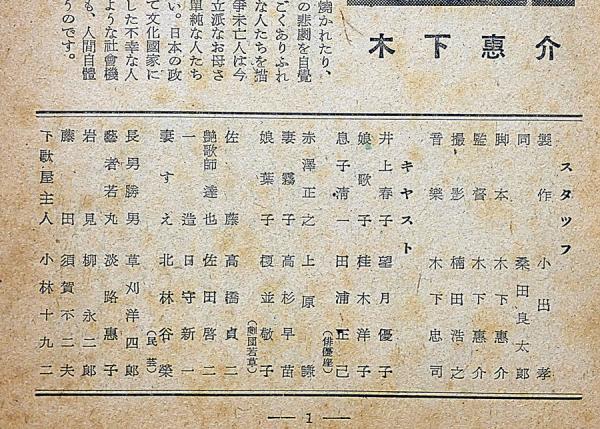 木下惠介
焼かれたり、
の悲劇を自覺
ごくありふれ
な人たちを描
爭未亡人は今
立派なお母さ
單純な人たち
い。日本の政
て文化國家に
した不幸な人
ような社會機
も、人間自體
うのです。
スタッフ
製作 小出孝
同 桑田良太郎
脚本 木下惠介
監督 木下惠介
撮影 楠田浩之
音樂 木下忠司
キヤスト
井上春子 望月優子
娘歌子 桂木洋子
息子淸一 田浦正己
(俳優座)
赤澤正之 上原謙
妻霧子 高杉早苗
娘葉子 榎並敬子
(劇団若草)
佐藤 高橋貞二
艶歌師達也 佐田啓二
一造 日守新一
妻すえ 北林谷榮
(民芸)
長男勝男 草刈洋四郎
藝者若丸 淡路惠子
岩見 柳永二郎
藤田 須賀不二夫
下駄屋主人 小林十九二
— 1 —